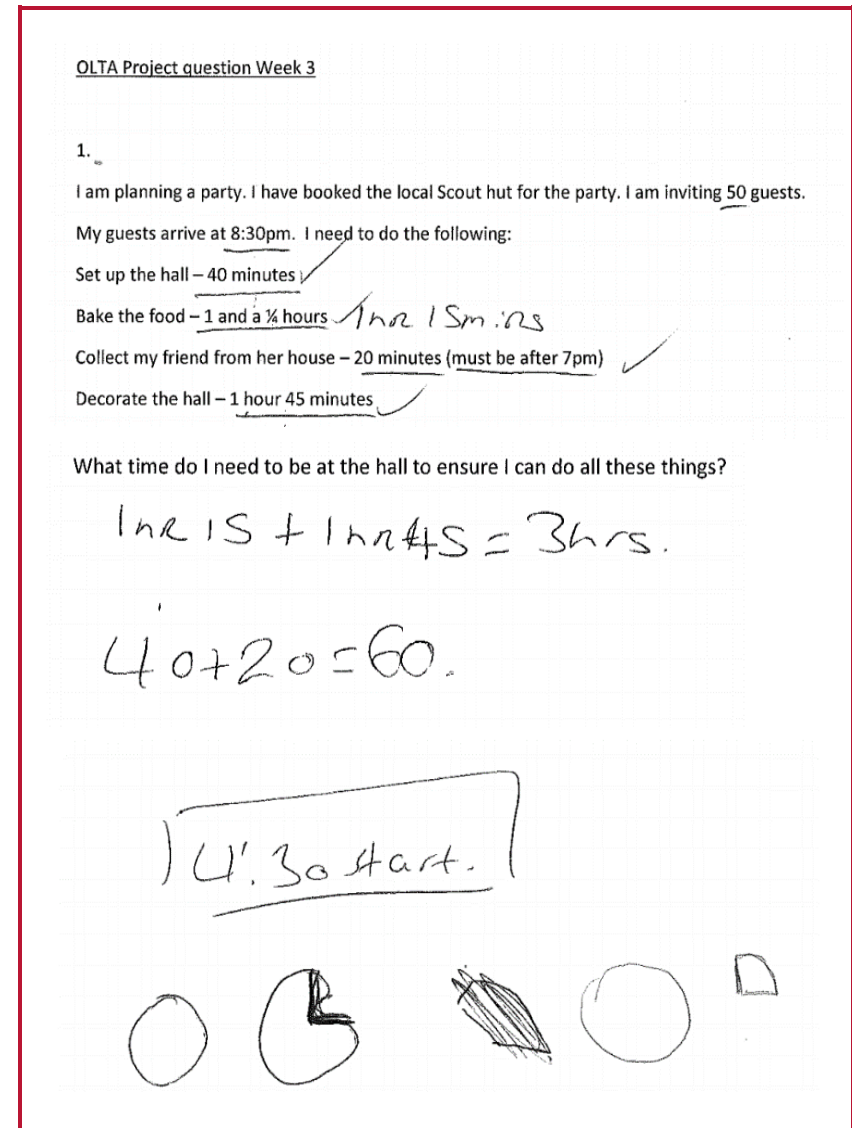 OLTA Project question Week 3
1.
I am planning a party. I have booked the local Scout hut for the party. I am inviting 50 guests.
My guests arrive at 8:30pm. I need to do the following:
Set up the hall – 40 minutes
Bake the food – 1 and a ¼ hours 1hr 15mins
Collect my friend from her house – 20 minutes (must be after 7pm)
Decorate the hall – 1 hour 45 minutes
What time do I need to be at the hall to ensure I can do all these things?
1hr 15 + 1hr 45 = 3hrs.
40+20=60.
4:30 start.